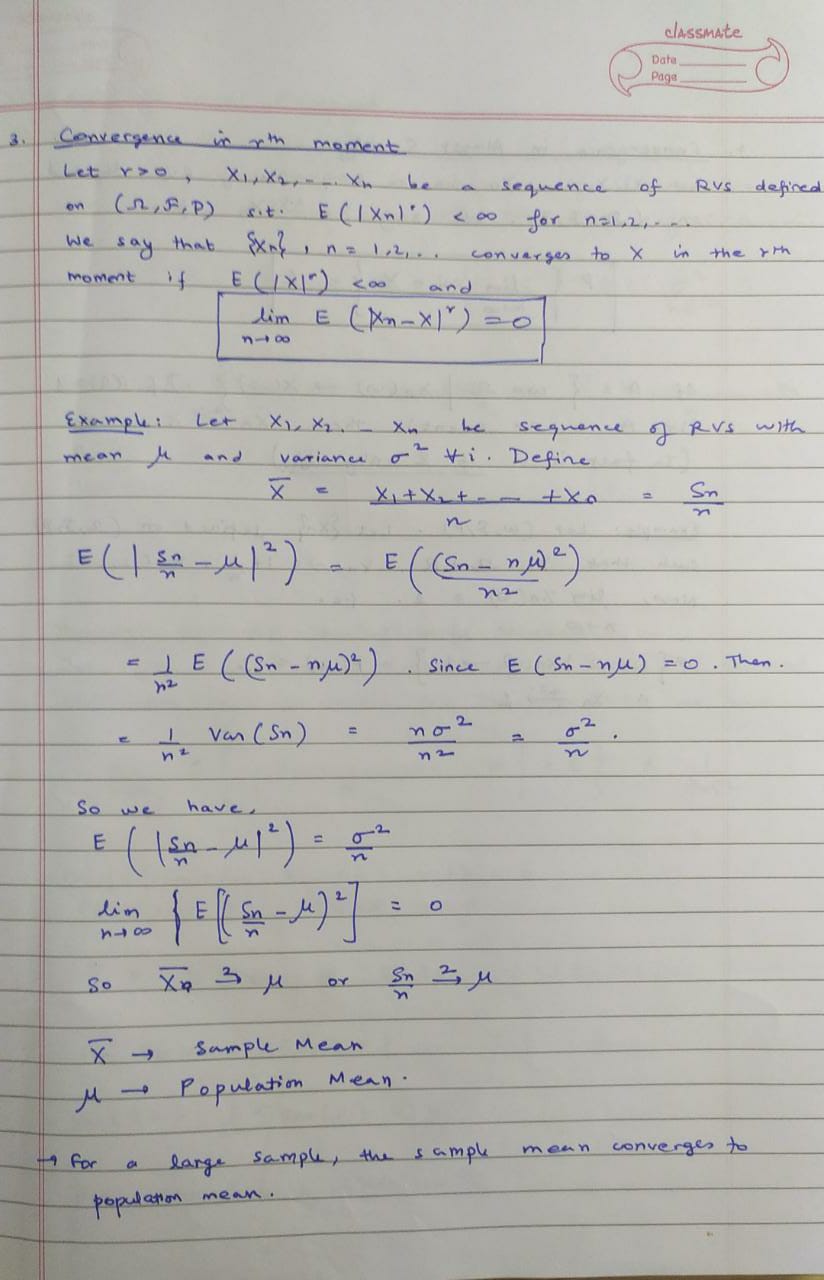 classmate
Date
Page
3. Convergence in rth moment
Let r>0, X₁, X₂, -... Xn be a sequence of RVS defined
on (Ω, F, P) s.t. E(|Xn|ʳ) < ∞ for n=1,2,....
We say that {Xn}, n = 1,2,.. converges to X in the rth
moment if E(|X|ʳ) <∞ and
lim n→∞ E (|Xn-X|ʳ) = 0
Example: Let X₁, X₂. - Xn be sequence of RVS with
mean μ and variance σ² ∀i. Define
X̅ = (X₁+X₂+- - +Xn)/n = Sn/n
E(|Sn/n - μ|²) = E((Sn - nμ)²/n²)
= 1/n² E ((Sn - nμ)²). Since E (Sn-nμ) = 0. Then.
= 1/n² Var(Sn) = nσ²/n² = σ²/n.
So we have,
E (|Sn/n - μ|²) = σ²/n
lim n→∞ {E[(Sn/n - μ)²] = 0
So X̅n →² μ or Sn/n →² μ
X̅ → Sample Mean
μ → Population Mean.
→ For a large sample, the sample mean converges to
population mean.